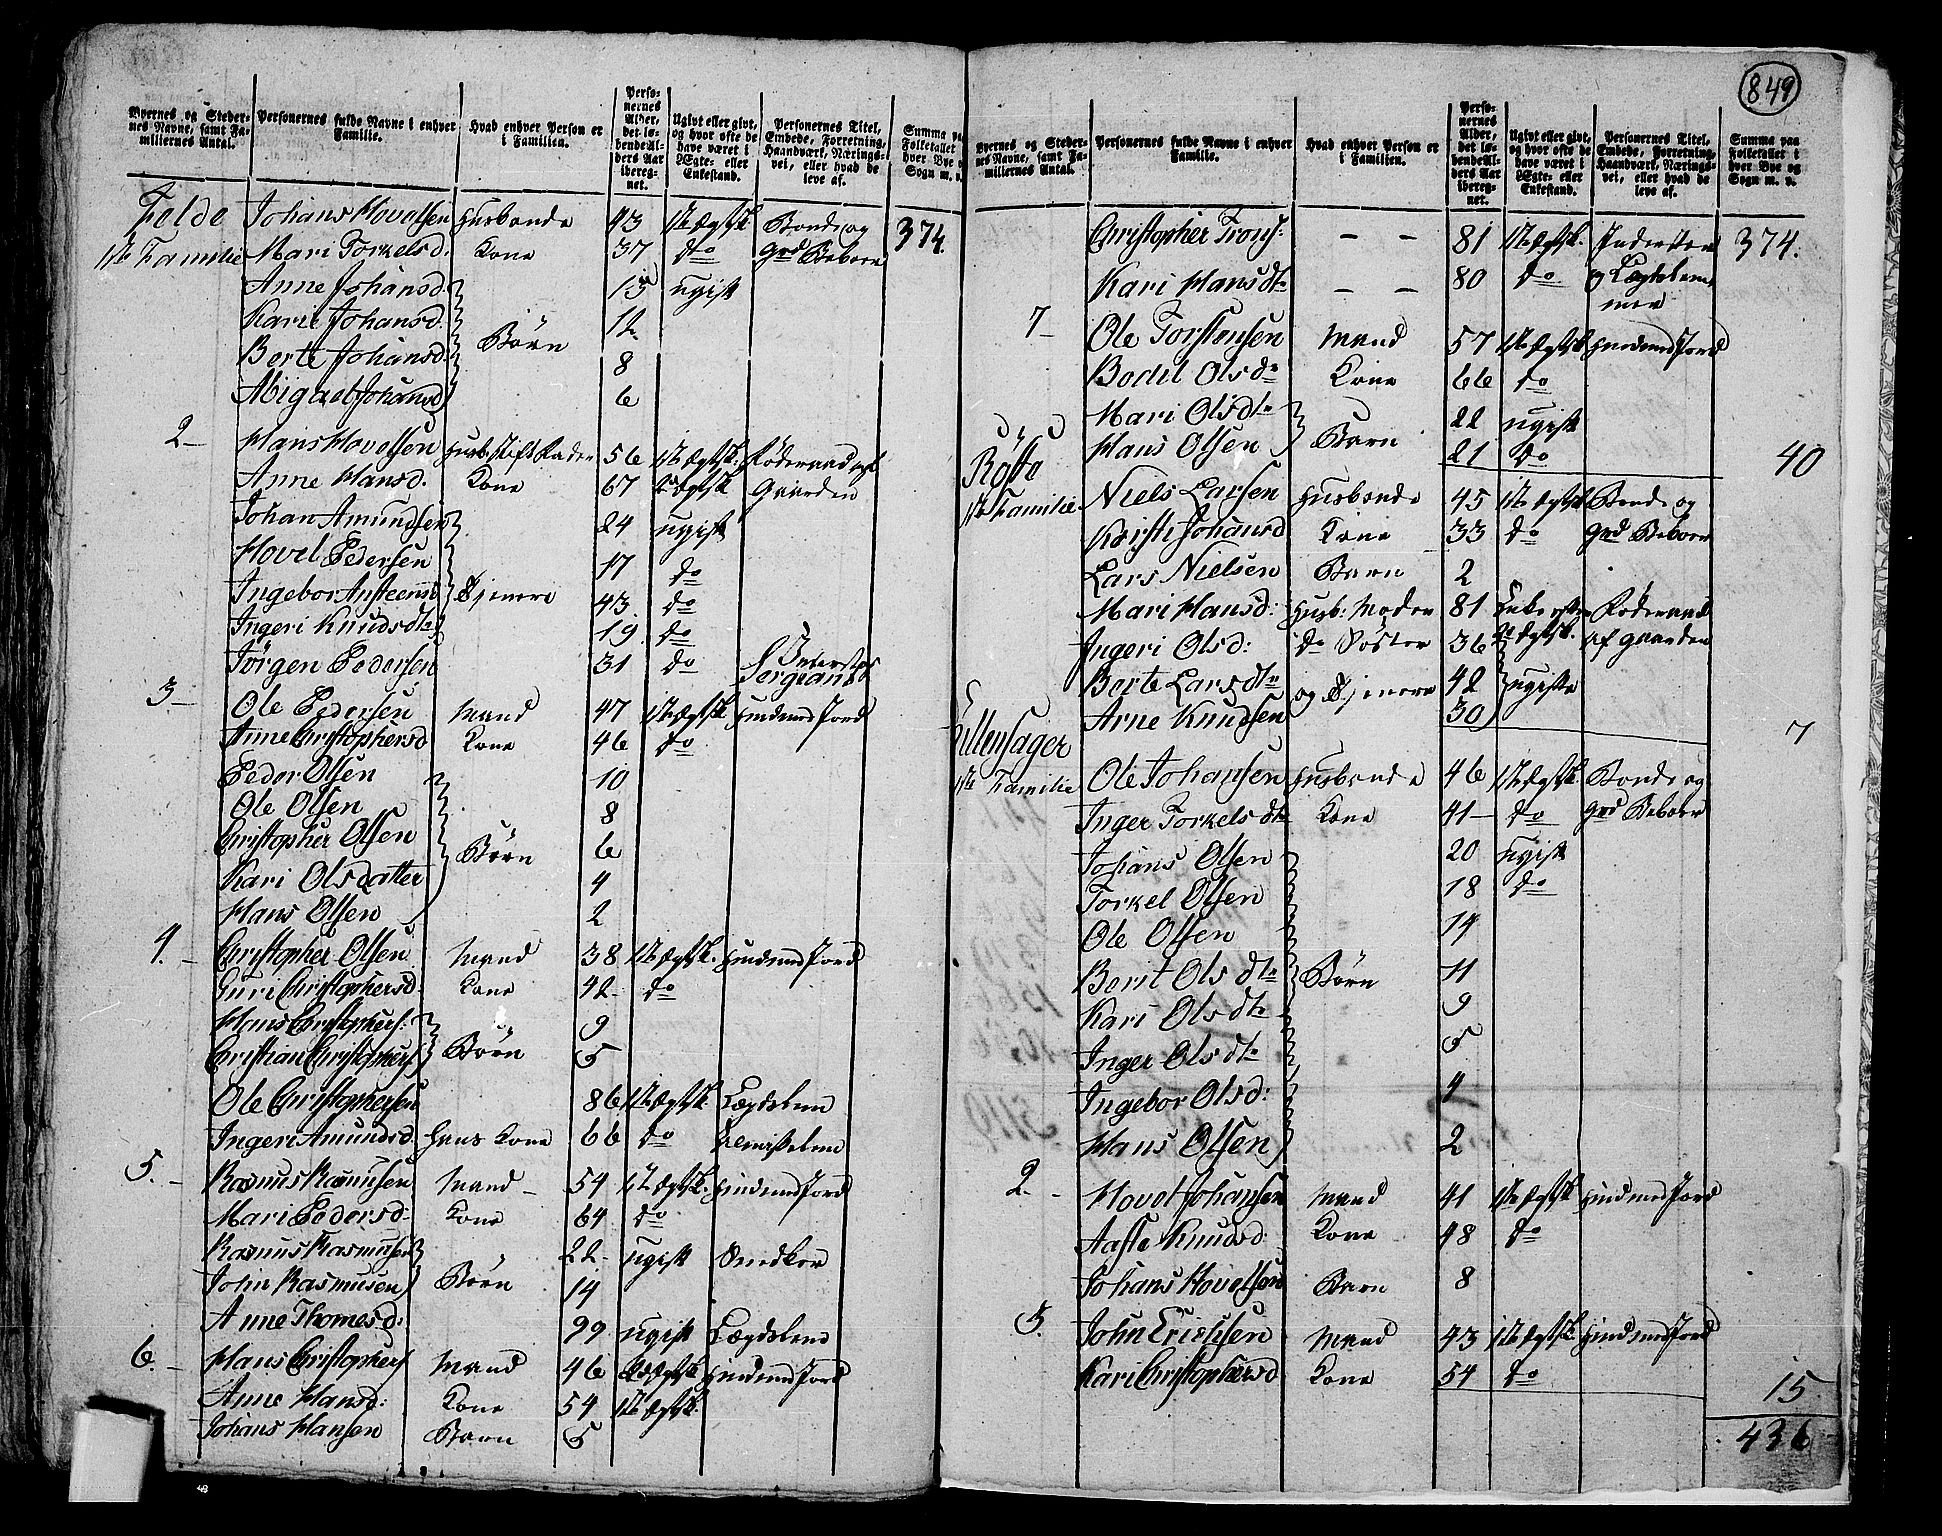 849
Byernes og Steder-nes Navne, samt Fa-milliernes Antal. Personernes fulde Navne i enhver Familie. Hvad enhver Person er i Familien. Perso-nernes Alder, det lø-bende Al-ders Aar iberegnet. Ugivt eller givt, og hvor ofte de have været i Ægte- eller Enkestand. Personernes Titel, Embede, Forretning, Haandværk, Nærings-vei, eller hvad de leve af. Summa paa Folketallet i hver Bye og Sogn m. v.
Felde Johans Hovelsen Husbonde 43 1ste Ægtsk Bonde og 374.
1ste Familie Mari Torkelsd. Kone 37 do grd Beboer
Anne Johansd. 15 ugift
Karie Johansd. 12
Berte Johansd. Børn 8
Abigael Johansd 6
2 Hans Hovelsen Husb. Stiftfader 56 1ste Ægtsk. Föderaad af
Anne Hansd. Kone 67 2 Ægtsk Gaarden
Johan Amundsen 24 ugift
Hovel Pedersen 17 do
Ingebor Tjenere 43 do
Ingeri Knudsdtr 19 do
Jørgen Pedersen 31 do Sergiant
3 Ole Pedersen Mand 47 1ste Ægtsk Huusmd Jord
Anne Christophersd Kone 46 do
Peder Olsen 10
Ole Olsen 8
Christopher Olsen Børn 6
Kari Olsdatter 4
Hans Olsen 2
4. Christopher Olsen Mand 38 1ste Ægtsk. Huusmd Jord
Guri Christophersd. Kone 42 do
Hans Christophers: 9
Christian Christophers Børn 5
Ole Christophersen 86 1ste Ægtsk. Lægdslem
Ingeri Amundsd. Hans Kone 66 do
5. Rasmus Rasmusen Mand 54 1ste Ægtsk. Huusmd Jord
Mari Pedersd: Kone 64 do
Rasmus Rasmusen 22 ugift Snedker
John Rasmusen Børn 14
Anne Thomesd: 99 ugift Lægdslem
6. Hans Christophers Mand 46 2d Ægtsk. Huusmd Jord
Anne Hansd: Kone 54 1ste Ægtsk.
Johans Hansen Barn 5
Byernes og Steder-nes Navne, samt Fa-milliernes Antal. Personernes fulde Navne i enhver Familie. Hvad enhver Person er i Familien. Perso-nernes Alder, det lø-bende Al-ders Aar iberegnet. Ugivt eller givt, og hvor ofte de have været i Ægte- eller Enkestand. Personernes Titel, Embede, Forretning, Haandværk, Nærings-vei, eller hvad de leve af. Summa paa Folketallet i hver Bye og Sogn m. v.
Christopher — — 81 1ste Ægtsk. Inderster 374.
Kari Hansdtr — — 80 do og Lægdslem-mer
7 Ole Torstensen Mand 57 1ste Ægtsk Huusmd Jord
Bodil Olsdr Kone 66 do
Mari Olsdtr 22 ugift
Hans Olsen Barn 21 do 40
Röste
1ste Familie Niels Larsen Husbonde 45 1ste Ægtsk Bonde og
Kirsti Johansd Kone 33 do grd Beboer
Lars Nielsen Barn 2
Mari Hansd: Husb: Moder 81 Föderaad
Ingeri Olsd: do Söster 36 af gaarden
Berte Larsdtr og Tjenere 42 ugifte
Arne Knudsen 30 7
Ullensager
1ste Familie Ole Johansen Husbonde 46 1ste Ægtsk Bonde og
Inger Torkelsdtr Kone 41 do grd Beboer
Johans Olsen 20 ugift
Torkel Olsen 18 do
Ole Olsen 14
Berit Olsdtr Børn 11
Kari Olsdtr 9
Inger Olsdtr 5
Ingebor Olsd: 4
Hans Olsen 2
2. Hovel Johansen Mand 41 1ste Ægtsk Huusmd Jord
Aaste Knudsd: Kone 48 do
Johans Hovelsen Barn 8
3. John Erichsen Mand 43 1ste Ægtsk. Huusmd Jord
Kari Christophersd Kone 54 do 15
436